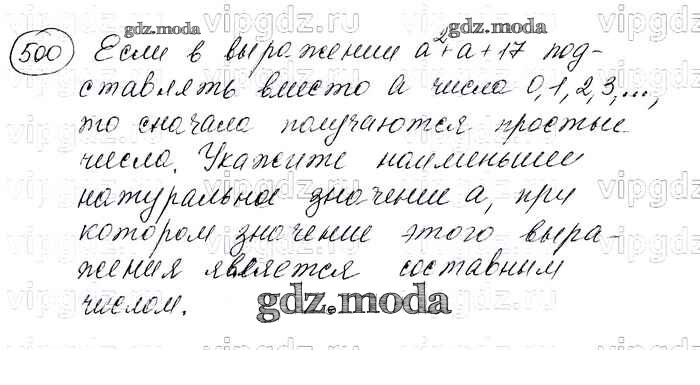 gdz.moda
500 Если в выражении a²+a+17 под-
ставлять вместо a числа 0,1,2,3,...,
то сначала получаются простые
числа. Укажите наименьшее
натуральное значение a, при
котором значение этого выра-
жения является составным
числом.
gdz.moda